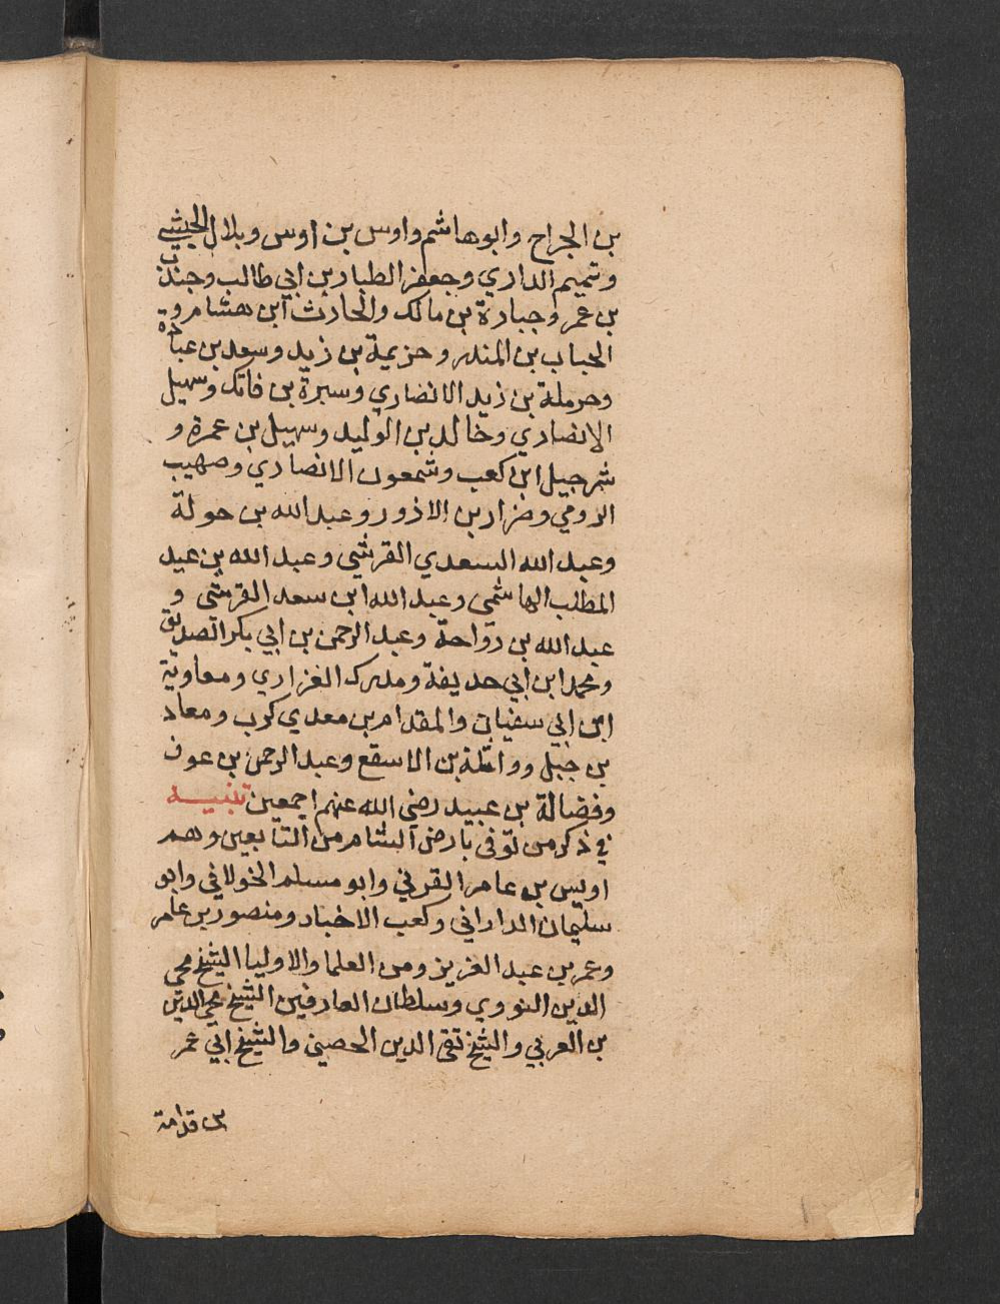 بن الجراح وابوهاشم واوس بن اوس وبلال الحبشي
وتميم الداري وجعفر الطيار بن ابي طالب وجندب
بن عمر وجبارة بن مالك والحارث ابن هشام و
الحباب بن المنذر وحزيمة بن زيد وسعد بن عبادة
وحرملة بن زيد الانصاري وسبرة بن فاتك وسهيل
الانصاري وخالد بن الوليد وسهيل بن عمرة و
شرجيل ابن كعب وشمعون الانصاري وصهيب
الرومي وضرار بن الاذور وعبد الله بن حولة
وعبد الله السعدي القرشي وعبد الله بن عبد
المطلب الهاشمي وعبد الله ابن سعد القرشي و
عبد الله بن رواحة وعبد الرحمن بن ابي بكر الصديق
ومحمد ابن ابي حديفة ومدرك الفزاري ومعاوية
ابن ابي سفيان والمقدام بن معدي كرب ومعاد
بن جبل وواثلة بن الاسقع وعبد الرحمن بن عوف
وفضالة بن عبيد رضي الله عنهم اجمعين تنبيه
في ذكر من توفى بارض الشام من التابعين وهم
اويس بن عامر القرني وابو مسلم الخولاني وابو
سليمان الداراني وكعب الاخبار ومنصور بن عامر
وعمر بن عبد العزيز ومن العلما والاوليا الشيخ محي
الدين النووي وسلطان العارفين الشيخ محي الدين
بن العربي والشيخ تقي الدين الحصيني والشيخ ابي عمر
بن قدامة